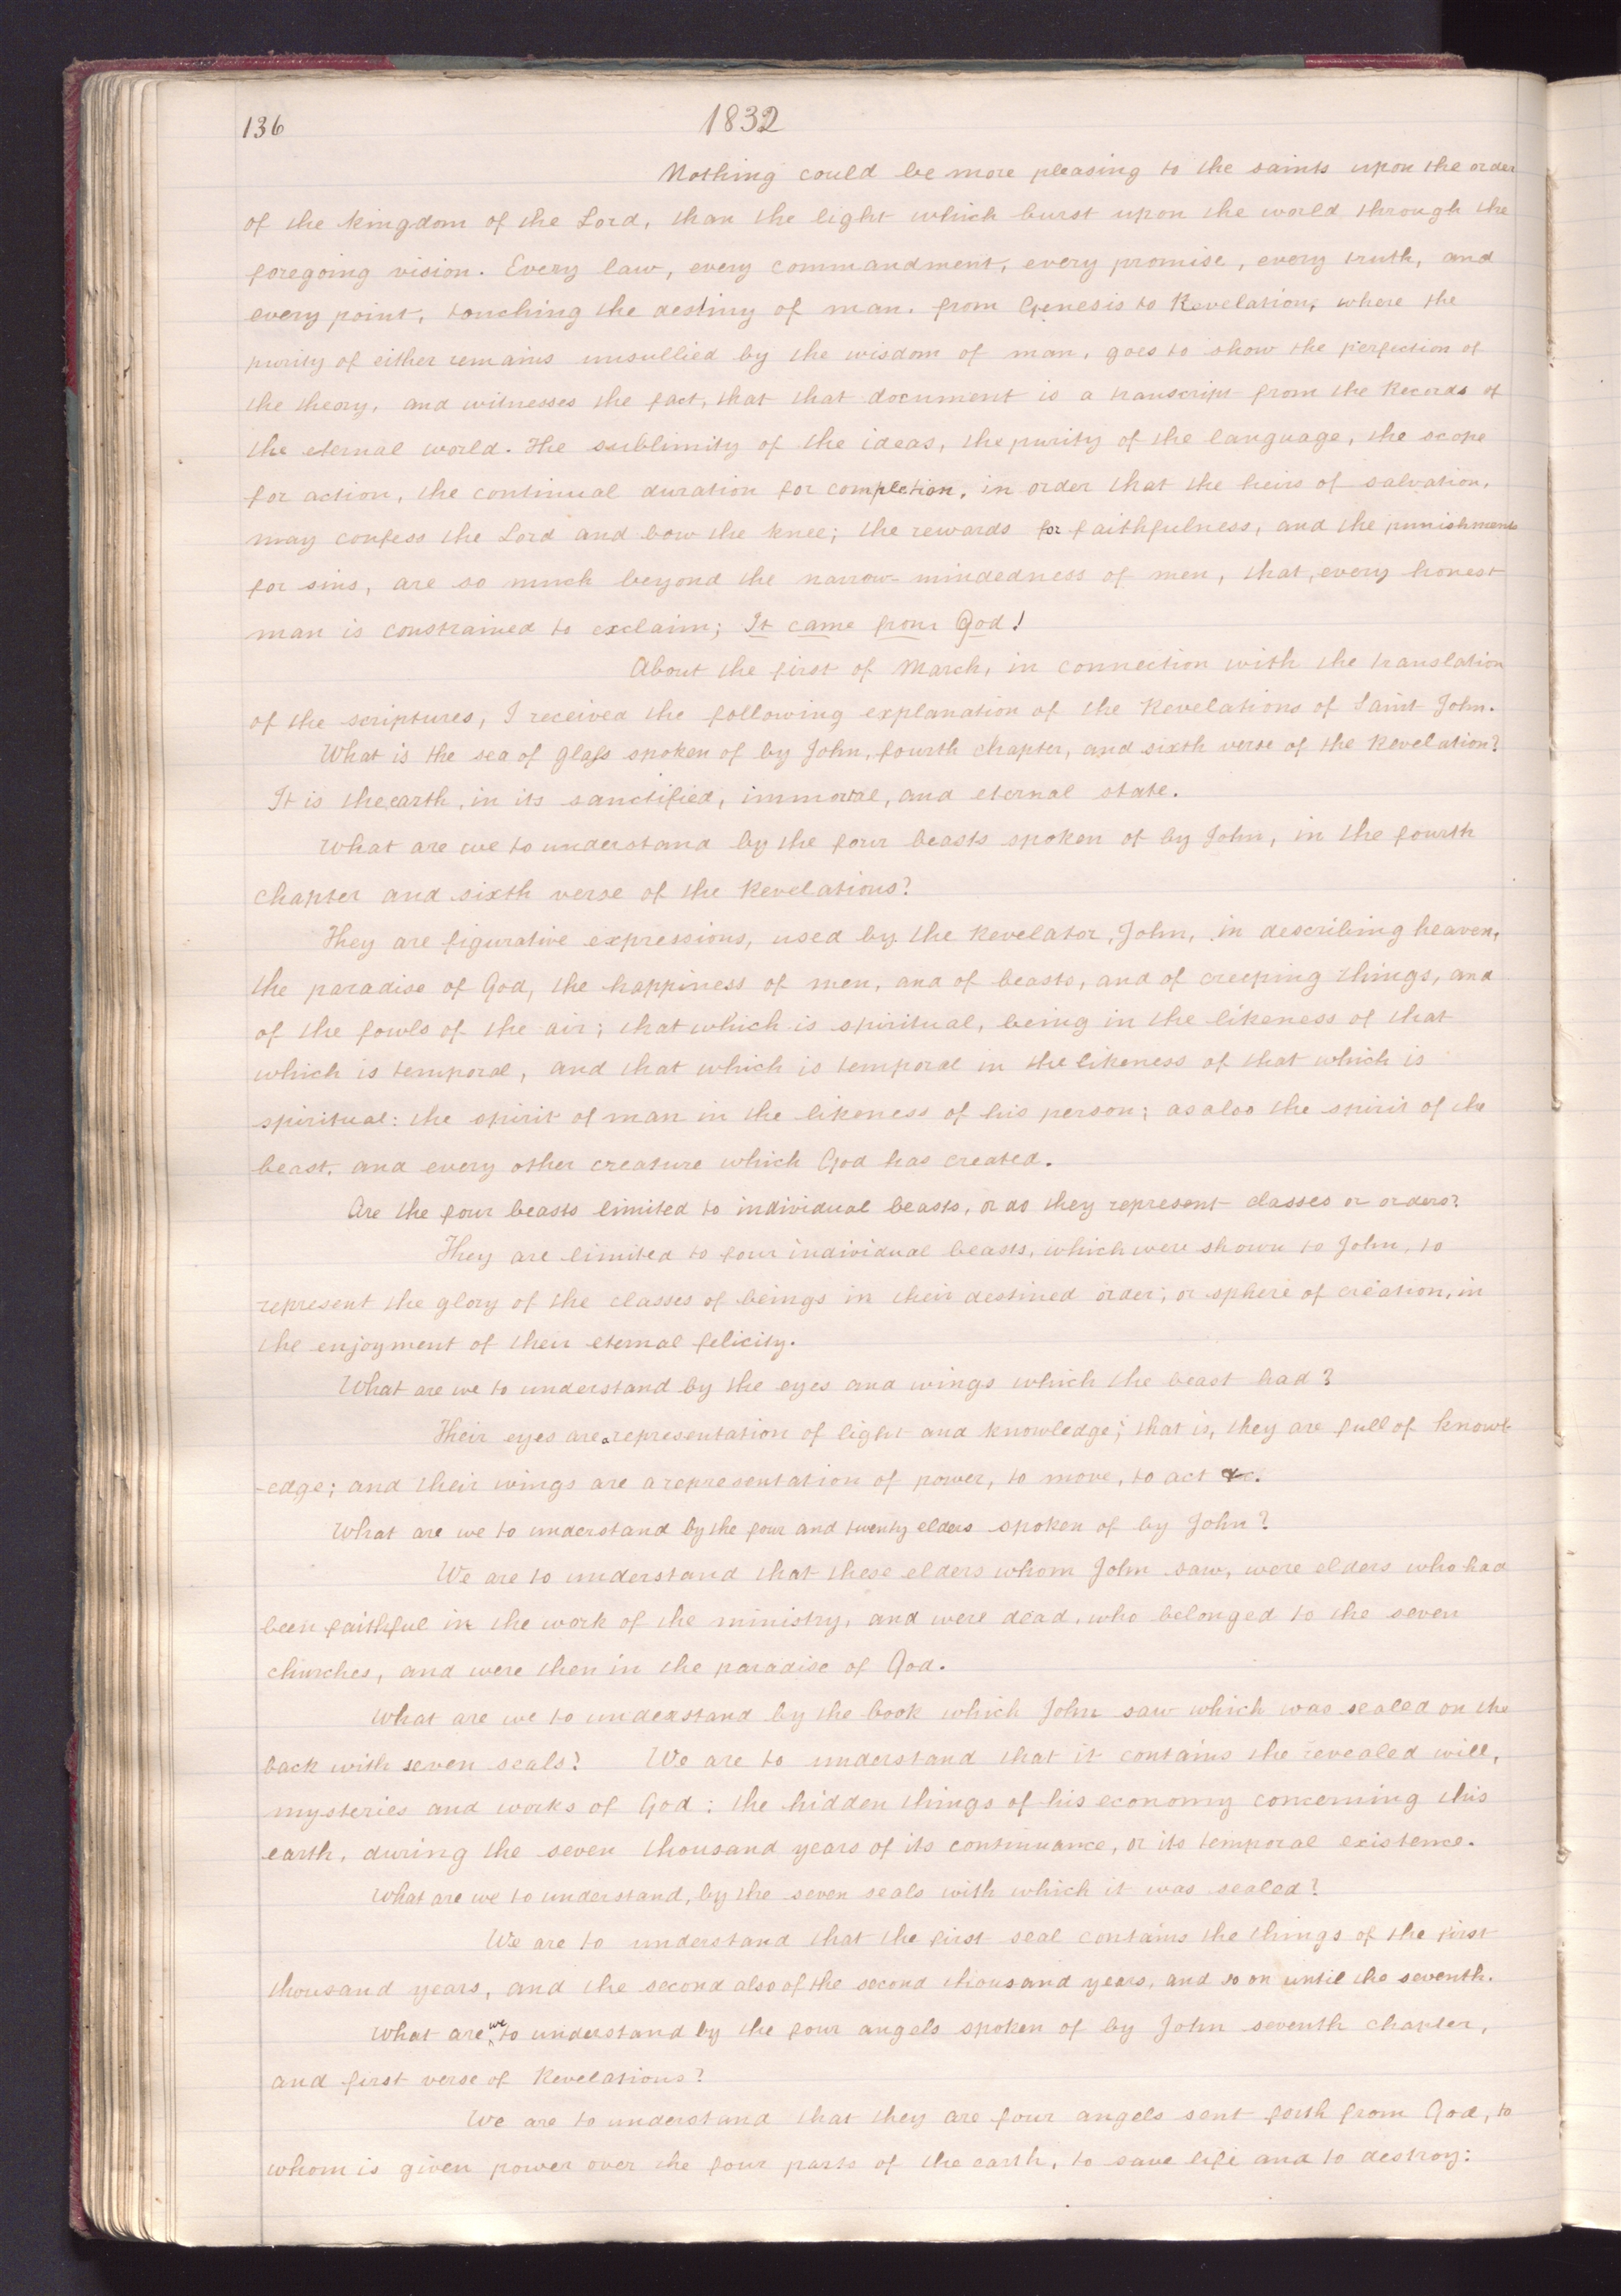 136
1832
Nothing could be more pleasing to the saints upon the order
of the kingdom of the Lord, than the light which burst upon the world through the
foregoing vision. Every law, every commandment, every promise, every truth, and
every point, touching the destiny of man. from Genesis to Revelation, where the
purity of either remains unsullied by the wisdom of man, goes to show the perfection of
the theory, and witnesses the fact, that that document is a transcript from the Records of
the eternal world. The sublimity of the ideas, the purity of the language, the scope
for action, the continual duration for completion, in order that the heirs of salvation,
may confess the Lord and bow the knee; the rewards for faithfulness, and the punishments
for sins, are so much beyond the narrow-mindedness of men, that, every honest
man is constrained to exclaim; It came from God!
About the first of March, in connection with the translation
of the scriptures, I received the following explanation of the Revelations of Saint John.
What is the sea of glass spoken of by John, fourth chapter, and sixth verse of the Revelation?
It is the earth, in its sanctified, immortal, and eternal state.
What are we to understand by the four beasts spoken of by John, in the fourth
chapter and sixth verse of the Revelations?
They are figurative expressions, used by the Revelator, John, in describing heaven,
the paradise of God, the happiness of men, and of beasts, and of creeping things, and
of the fowls of the air; that which is spiritual, being in the likeness of that
which is temporal, and that which is temporal in the likeness of that which is
spiritual: the spirit of man in the likeness of his person; as also the spirit of the
beast, and every other creature which God has created.
Are the four beasts limited to individual beasts, or do they represent classes or orders?
They are limited to four individual beasts, which were shown to John, to
represent the glory of the classes of beings in their destined order; or sphere of creation, in
the enjoyment of their eternal felicity.
What are we to understand by the eyes and wings which the beast had?
Their eyes are a representation of light and knowledge; that is, they are full of knowl-
-edge; and their wings are a representation of power, to move, to act &c.
What are we to understand by the four and twenty elders spoken of by John?
We are to understand that these elders whom John saw, were elders who had
been faithful in the work of the ministry, and were dead, who belonged to the seven
churches, and were then in the paradise of God.
What are we to understand by the book which John saw which was sealed on the
back with seven seals? We are to understand that it contains the revealed will,
mysteries and works of God: the hidden things of his economy concerning this
earth, during the seven thousand years of its continuance, or its temporal existence.
What are we to understand, by the seven seals with which it was sealed?
We are to understand that the first seal contains the things of the first
thousand years, and the second also of the second thousand years, and so on until the seventh.
What are we to understand by the four angels spoken of by John seventh chapter,
and first verse of Revelations?
We are to understand that they are four angels sent forth from God, to
whom is given power over the four parts of the earth, to save life and to destroy: